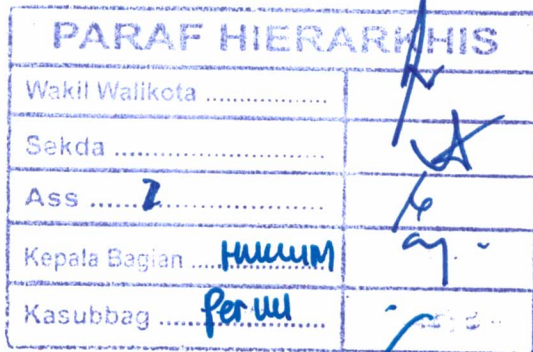 PARAF HIERARKHIS
Wakil Walikota ................
Sekda ...........................
Ass ......I.......................
Kepala Bagian ...HUKUM
Kasubbag ......Per UU......